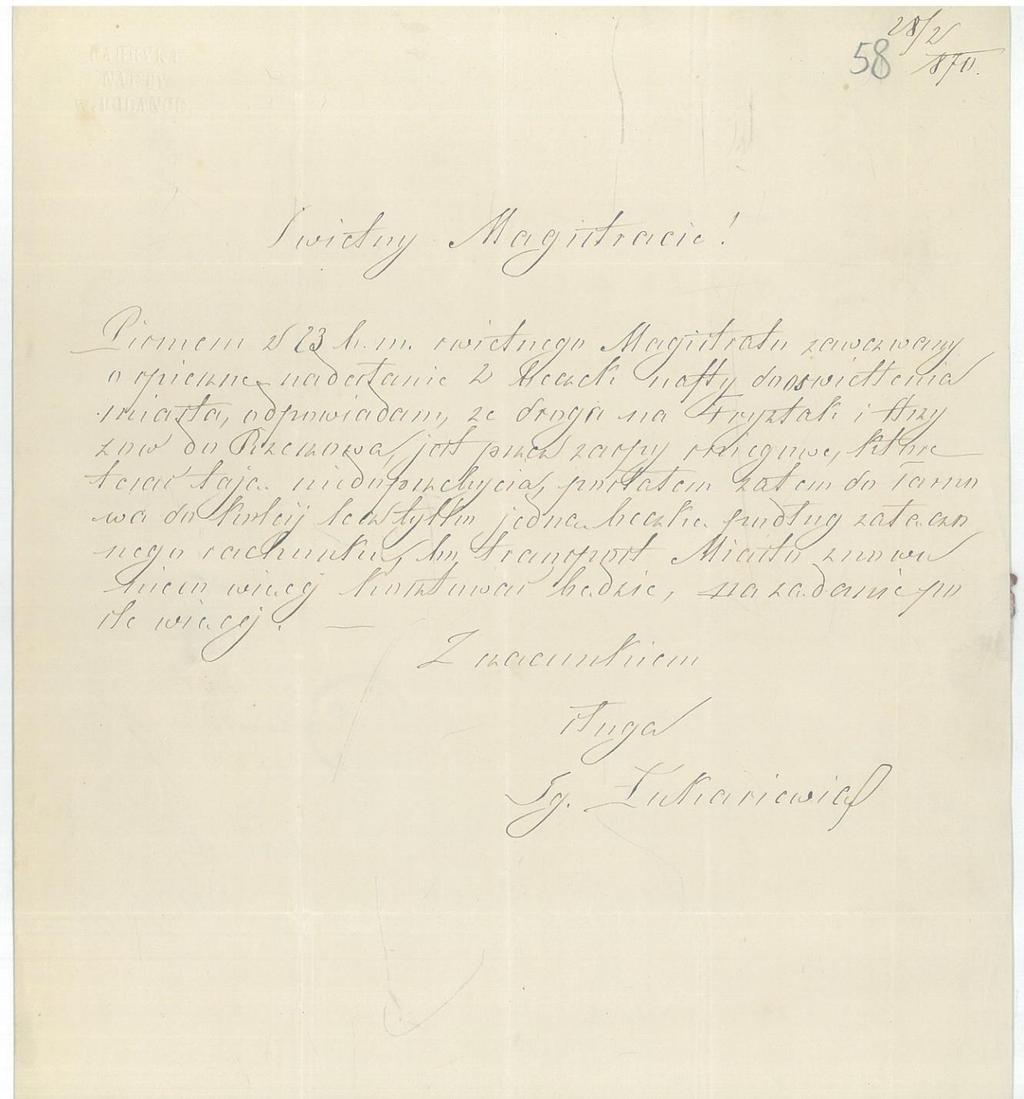 28/2
58 870.
Swietny Magistracie!
Pismem z 23 b. m. swietnego Magistratu zawezwany
o spieszne nadesłanie 2 beczek nafty do oswietlenia
miasta, odpowiadam, ze droga na Frysztak i Strzy
zow do Rzeszowa, jest przez zaspy sniegowe, które
teraz są niedoprzebycia, posłałem zatem do Tarno
wa do koléij lecz tylko jedna beczke podług załaczo
nego rachunku, bo transport Miastu znowu
nieco wiecej kosztowac bedzie, na zadanie po
sle wiecej. —
Z szacunkiem
sługa
Ig. Łukasiewicz